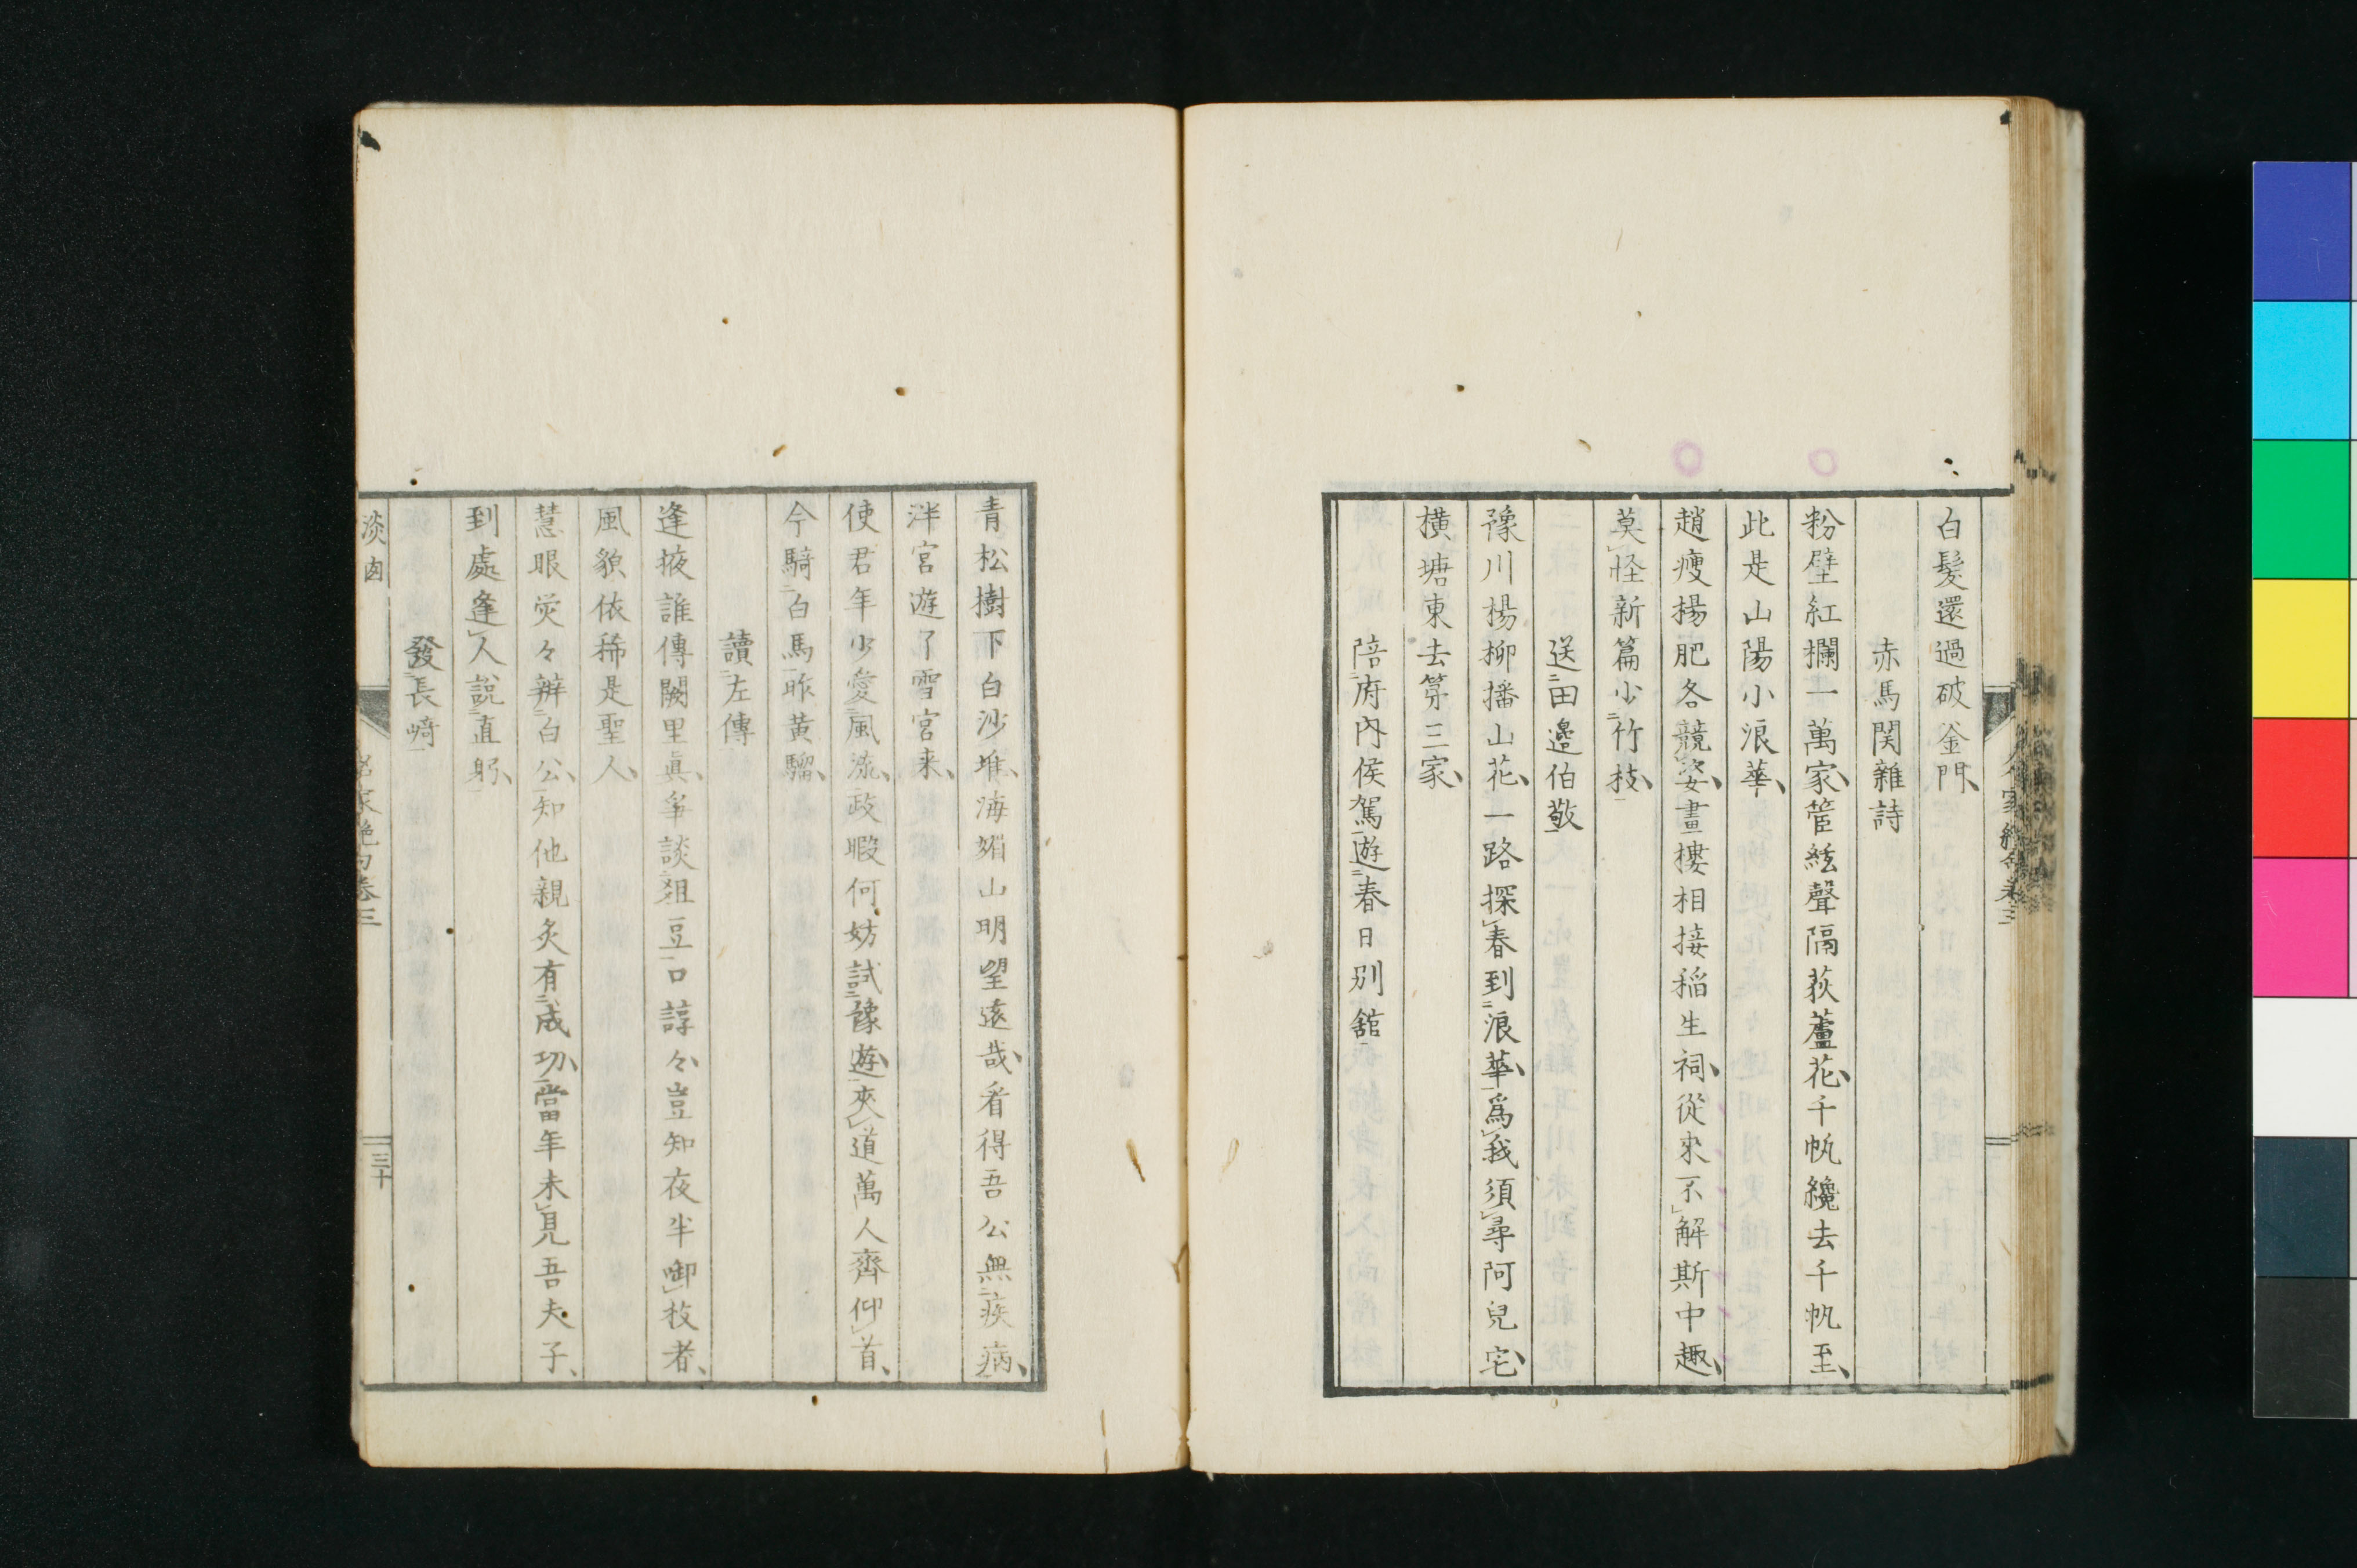 白髮還過破釜門
赤馬関雜詩
粉壁紅欄一萬家管絃聲隔荻蘆花千帆纔去千帆至
此是山陽小浪華
趙瘦楊肥各競姿畫樓相接稲生祠從來不解斯中趣
莫怪新篇少竹枝
送田邉伯敬
豫川楊柳播山花一路探春到浪華爲我須尋阿兒宅
橫塘東去第三家
陪府內侯駕遊春日別舘
青松樹下白沙堆海媚山明望遠哉看得吾公無疾病
泮宮遊了雪宮来
使君年少愛風流政暇何妨試豫遊夾道萬人齊仰首
今騎白馬昨黃騮
讀左傳
逢掖誰傳闕里眞爭談俎豆口諄々豈知夜半啣枚者
風貌依稀是聖人
慧眼炎々辨白公知他親炙有成功當年未見吾夫子
到處逢人說直躬
發長﨑
淡囱
名家絶句卷三
三十